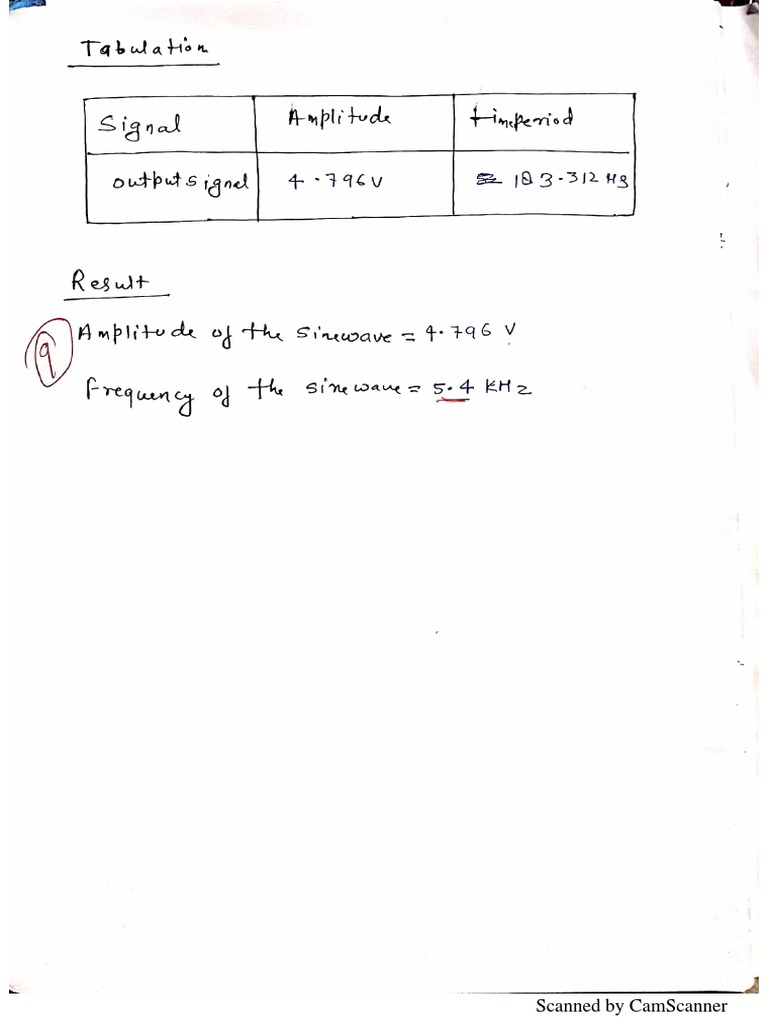 Tabulation
Signal Amplitude timeperiod
output signal 4.796V 183.312 Hs
Result
9
Amplitude of the sinewave = 4.796 V
frequency of the sinewave = 5.4 KHz
Scanned by CamScanner